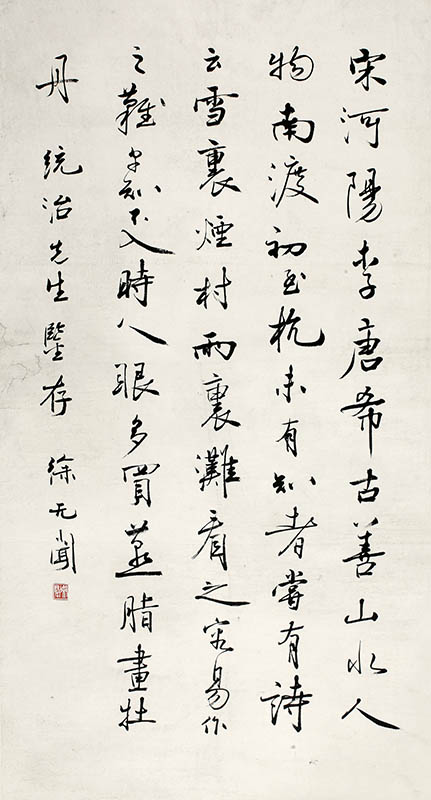 宋河陽李唐希古善山水人
物南渡初至杭未有知者嘗有詩
云雪裏煙村雨裏灘看之容易作
之難早知不入時人眼多買燕脂畫牡
丹 統治先生鑒存 徐无聞